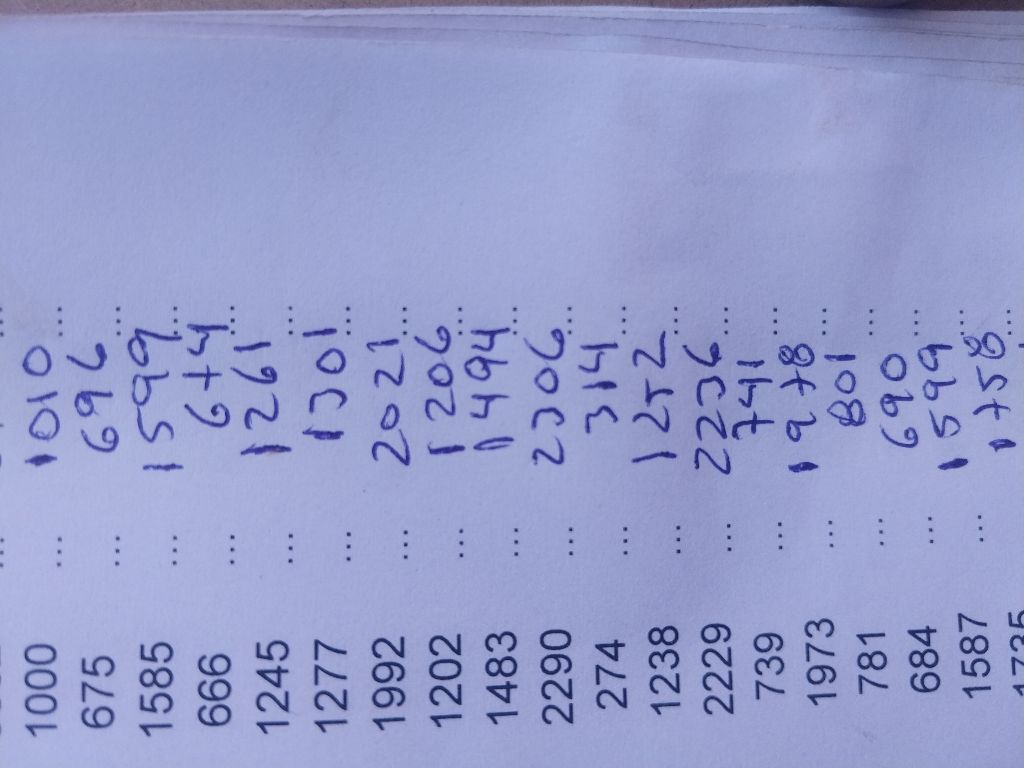 1000 ... 1010 ...
675 ... 696 ...
1585 ... 1599 ...
666 ... 674 ...
1245 ... 1261 ...
1277 ... 1301 ...
1992 ... 2021 ...
1202 ... 1206 ...
1483 ... 1494 ...
2290 ... 2306 ...
274 ... 314 ...
1238 ... 1252 ...
2229 ... 2236 ...
739 ... 741 ...
1973 ... 1978 ...
781 ... 801 ...
684 ... 690 ...
1587 ... 1599 ...
1735 1758 ...